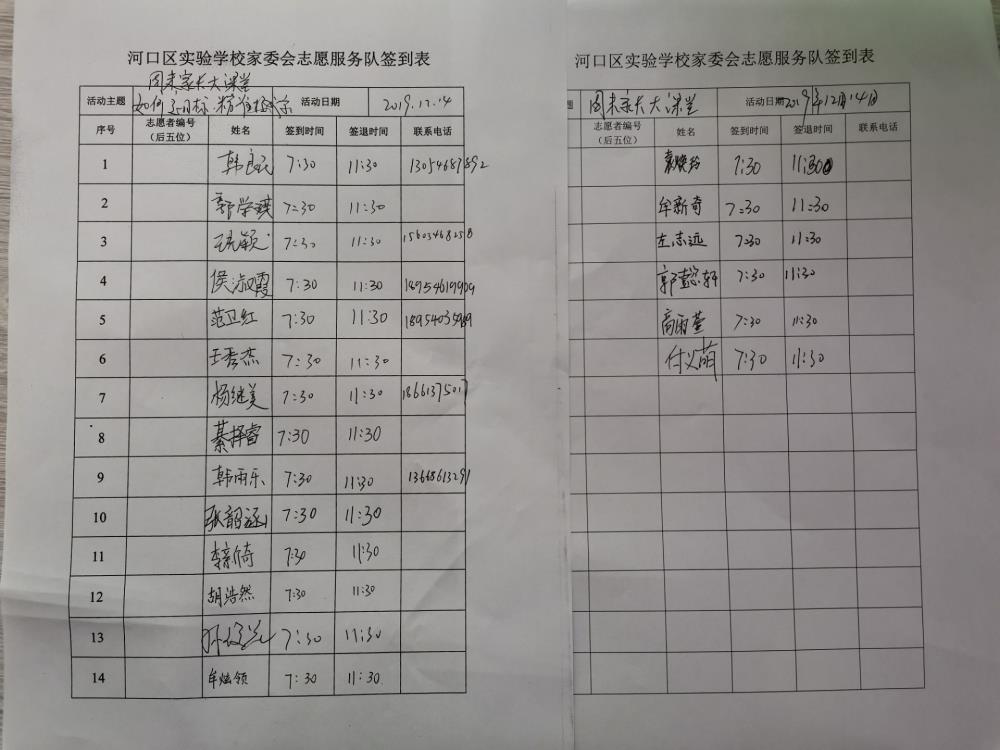 河口区实验学校家委会志愿服务队签到表
周末家长大课堂
活动主题 如何定目标 精准 活动日期 2019.12.14
序号 志愿者编号（后五位） 姓名 签到时间 签退时间 联系电话
1 韩良民 7:30 11:30 13054687892
2 郭学祺 7:30 11:30
3 颖 7:30 11:30 15603468258
4 侯淑霞 7:30 11:30
5 范卫红 7:30 11:30
6 王秀杰 7:30 11:30
7 杨继美 7:30 11:30 18661375017
8 綦择睿 7:30 11:30
9 韩雨乐 7:30 11:30 13668613291
10 张韶涵 7:30 11:30
11 李新倚 7:30 11:30
12 胡浩然 7:30 11:30
13 7:30 11:30
14 牟炫领 7:30 11:30
河口区实验学校家委会志愿服务队签到表
题 周末家长大课堂 活动日期 2019年12月14日
志愿者编号（后五位） 姓名 签到时间 签退时间 联系电话
袁 7:30 11:30
牟新奇 7:30 11:30
左志远 7:30 11:30
郭懿轩 7:30 11:30
高雨萱 7:30 11:30
付义萌 7:30 11:30